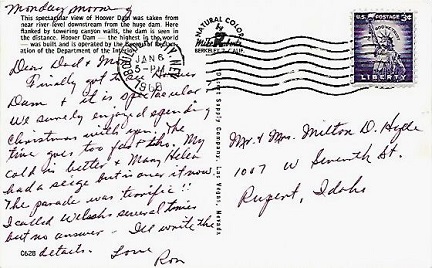 Monday morning
This spectacular view of Hoover Dam was taken from
river level downstream from the huge dam. Here
flanked by towering canyon walls, the dam is seen in
the distance. Hoover Dam — the highest in the world
— was built and is operated by the Bureau of Reclamation
of the Department of the Interior.
NATURAL COLOR
BERKELEY 2, CALIF.
U.S. POSTAGE 3¢
LIBERTY
JAN 6
PM
Dear Dad & Mom
Finally got to see Hoover
Dam & it is spectacular
We surely enjoyed spending
Christmas with you. The
time goes too fast tho. My
cold is better & Mary Helen
had a seige but is over it now.
The parade was terrific!!
I called Welsshs several times
but no answer - I'll write the
details. Love
Ron
C628
Supply Company, Las Vegas, Nevada
Mr. & Mrs. Milton D. Hyde
1007 W Seventh St.
Rupert, Idaho